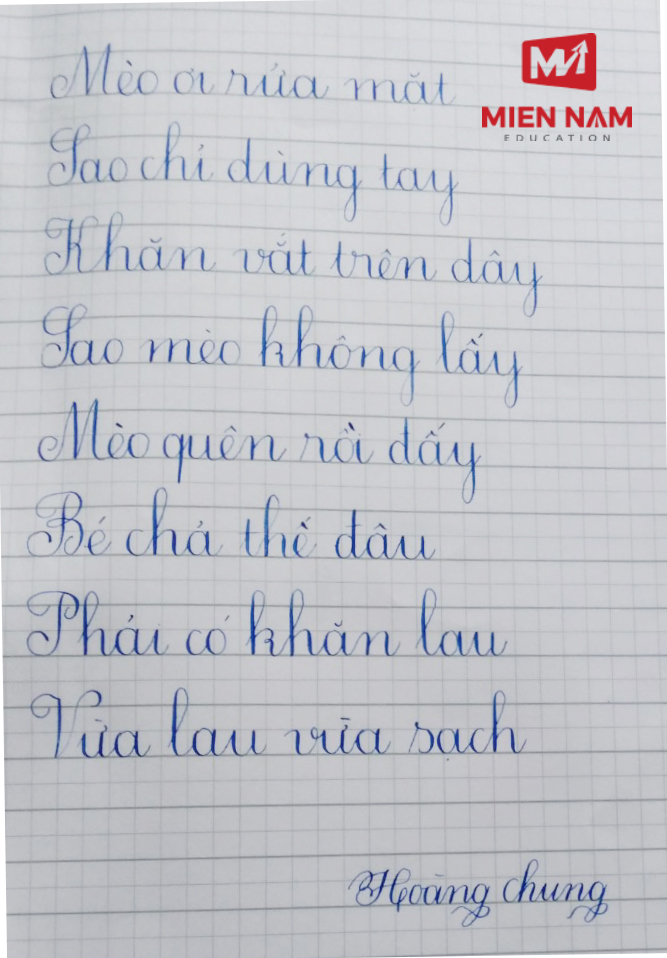 MIEN NAM
EDUCATION
Mèo ơi rửa mặt
Sao chỉ dùng tay
Khăn vắt trên dây
Sao mèo không lấy
Mèo quên rồi đấy
Bé chả thế đâu
Phải có khăn lau
Vừa lau vừa sạch
Hoàng Chung